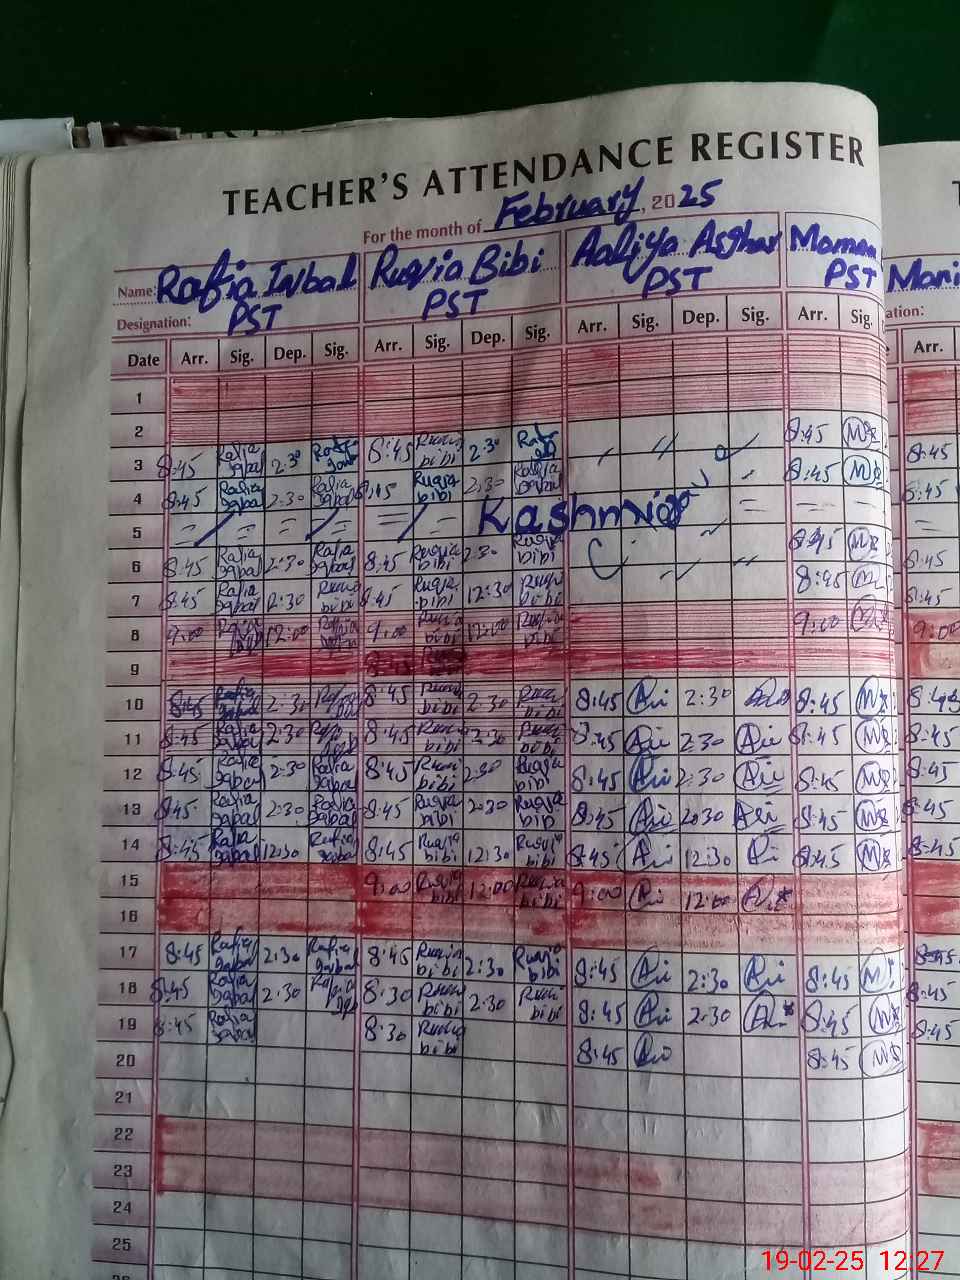 TEACHER'S ATTENDANCE REGISTER
For the month of February, 2025
Name: Rafia Iqbal Ruqia Bibi Aaliya Asghar
Designation: PST PST PST PST
Date Arr. Sig. Dep. Sig. Arr. Sig. Dep. Sig. Arr. Sig. Dep. Sig. Arr. Sig. Arr.
1
2
3 8:45 Rafia Iqbal 2:30 8:45 Ruqia bibi 2:30 8:45 8:45
4 8:45 Rafia Iqbal 2:30 Rafia Iqbal 8:45 Ruqia bibi 2:30 8:45 8:45
5 Kashmir
6 8:45 Rafia Iqbal 2:30 Rafia Iqbal 8:45 Ruqia bibi 2:30 Ruqia bibi 8:45 8:45
7 8:45 Rafia Iqbal 12:30 8:45 Ruqia bibi 12:30 Ruqia bibi 8:45 8:45
8 9:00 12:00 9:00 Ruqia bibi 12:00 Ruqia bibi 9:00 9:00
9
10 8:45 Rafia Iqbal 2:30 8:45 Ruqia bibi 2:30 Ruqia bibi 8:45 2:30 8:45 8:45
11 8:45 Rafia Iqbal 2:30 8:45 Ruqia bibi 2:30 Ruqia bibi 8:45 2:30 8:45 8:45
12 8:45 Rafia Iqbal 2:30 Rafia Iqbal 8:45 Ruqia bibi 2:30 Ruqia bibi 8:45 2:30 8:45 8:45
13 8:45 Rafia Iqbal 2:30 Rafia Iqbal 8:45 Ruqia bibi 2:30 Ruqia bibi 8:45 2:30 8:45 8:45
14 8:45 Rafia Iqbal 12:30 Rafia Iqbal 8:45 Ruqia bibi 12:30 Ruqia bibi 8:45 12:30 8:45 8:45
15 9:00 Ruqia bibi 12:00 Ruqia bibi 9:00 12:00
16
17 8:45 Rafia Iqbal 2:30 Rafia Iqbal 8:45 Ruqia bibi 2:30 Ruqia bibi 8:45 2:30 8:45 8:45
18 8:45 Rafia Iqbal 2:30 8:30 Ruqia bibi 2:30 Ruqia bibi 8:45 2:30 8:45 8:45
19 8:45 Rafia Iqbal 8:30 Ruqia bibi 8:45 8:45 8:45
20
21
22
23
24
25
19-02-25 12:27